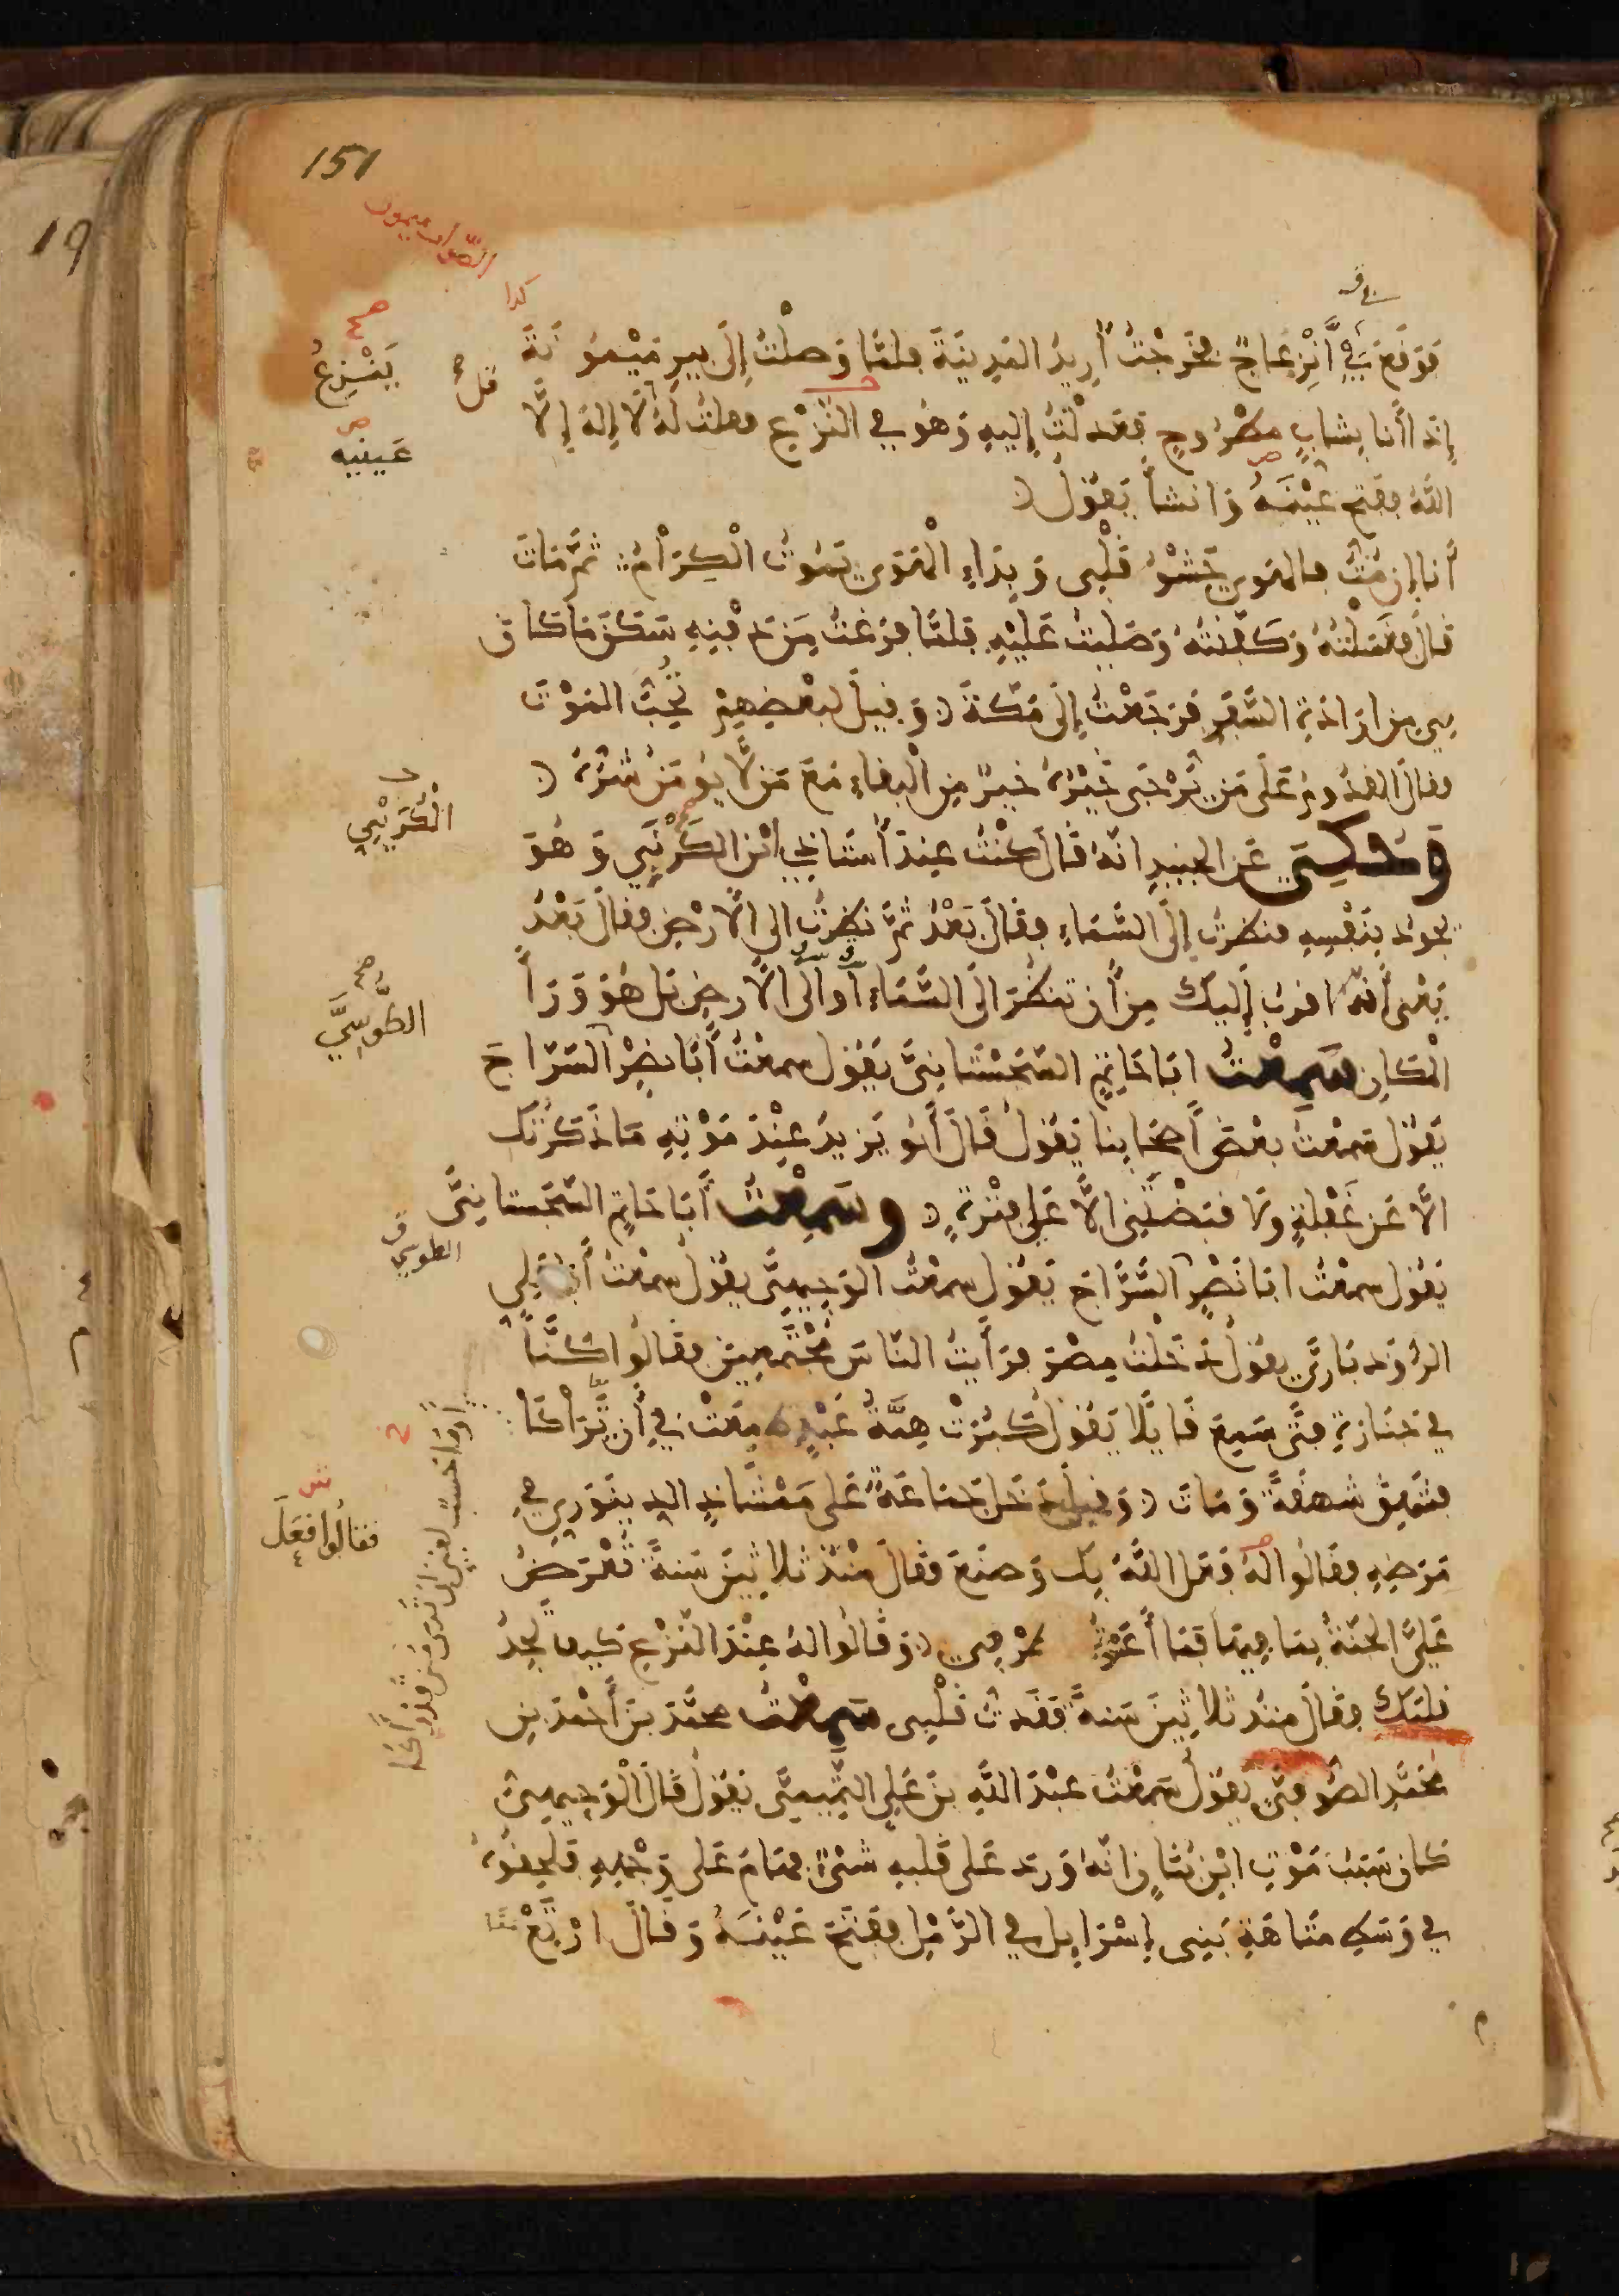 151
19
الصواب ميمون
كذا
فوقع فِيَّ انْزِعاجٌ فخرجْتُ أريدُ المدينَةَ فلمّا وَصلْتُ إلى بيرِ مَيْمُونَةَ
يَنْزِعُ
إذا أنا بشابٍ مطرُوحٍ فعدلْتُ إليهِ وَهُو في النَّزْعِ فقلتُ لهُ لا إلهَ إلّا
عَينيه
اللهُ ففتح عيْنَهُ وَانشأَ يَقُولُ
أنا إن مُتُّ فالهوى حَشْوُ قَلْبِى وَبِدَاءِ الْهَوَى يَمُوتُ الْكِرَامُ ثمَّ مَاتَ
قالَ فغَسَلْتُهُ وَكَفَّنْتُهُ وَصَلّيْتُ عَلَيْهِ فلمّا فرغْتُ مِنْ دَفْنِهِ سَكَنَ مَا كانَ
بي من ارادَةِ السَّفَرِ فرَجَعْتُ إلى مَكَّةَ وَقيلَ لبعْضِهِمْ تُحِبُّ المَوْتَ
فقالَ القدُومُ عَلَى مَن يُرْجَى خَيْرُهُ خَيرٌ مِنَ الْبقاءِ مَعَ مَن لَا يُومَنُ شَرُّهُ
الْكُرَيْنِي
وَحُكِيَ عَنِ الجنيدِ انّهُ قَالَ كنْتُ عِندَ أستَاذِي ابْنِ الكُرَيْنِي وَهُوَ
يجودُ بنَفْسِهِ فنظرْتُ إلَى السَّمَاءِ فقالَ بَعْدُ ثمَّ نظرْتُ الى الأرْضِ فقالَ بَعْدُ
يَعْنِى أنّهُ اقربُ إلَيكَ مِن أن تنظُرَ الى السَّمَاءِ أو الى الأرضِ بل هُوَ وَرَاءَ
الطُّوسِيَّ
الْمَكانِ سَمِعْتُ ابَا حَاتِمٍ السّجِسْتَانِيَّ يَقُولُ سمعْتُ أبَا نصْرٍ السَّرَّاجَ
يَقُولُ سَمعْتُ بعْضَ أصحَابِنا يَقُولُ قَالَ أبُو يَزيدَ عِنْدَ مَوْتِهِ مَا ذَكَرْتُكَ
الّا عَن غَفْلةٍ ولَا قبَضْتَنِى الّا عَلى فتْرَةٍ وَسَمِعْتُ أبَا حَاتِمٍ السّجِستانِيَّ
الطوسيَّ
يَقُولُ سمعْتُ ابَا نَصْرٍ السَّرَّاجَ يَقُولُ سمعْتُ الوَجِيهِيَّ يقُولُ سمعْتُ أبَا عَلي
الرُّوذبَارِيَّ يقولُ دخَلْتُ مِصْرَ فرَأيتُ النَّاسَ مُجْتَمِعِينَ فقالُوا كُنَّا
في جَنازةِ فتًى سَمِعَ قَائِلًا يَقُولُ كَبُرَتْ هِمَّةُ عَبْدٍ طمِعَتْ في أن تَرَاكَا
أوَمَا حسْب لعين أن ترى من قد رآكا
فشَهِقَ شَهقَةً وَمَاتَ وَقيلَ دَخَلَ جَماعَةٌ عَلى مَمْشَاذٍ الدِينَوَرِي في
مَرَضِهِ فقالُوا لهُ فَعَلَ اللهُ بكَ وَصنَعَ فقالَ مُنْذُ ثلاثِينَ سَنةً تُعْرَضُ
فقالُوا فعَلَ
عَليَّ الجَنّةُ بمَا فِيهَا فمَا أعَرْتُها طرْفِي وَقَالُوا لهُ عِنْدَ النَّزْعِ كيفَ تجدُ
قلبَكَ فقالَ منذُ ثلاثِينَ سَنةً فقَدتُ قَلْبِى سَمِعْتُ محمّدَ بنَ أحْمَدَ بنِ
محمّدٍ الصُّوفِيَّ يقولُ سَمعْتُ عبْدَ اللهِ بنَ عَلِي التَّمِيمِيَّ يَقُولُ قَالَ الْوَجِيهِيُّ
كانَ سَبَبُ مَوْتِ ابْنِ بُنَانٍ انّهُ وَرَدَ عَلى قَلبهِ شَىْءٌ فهَامَ عَلى وَجْهِهِ فلحِقُوهُ
في وَسَطِ مَتَاهَةِ بَنِى إسْرَائِيل في الرَّمْلِ ففَتَحَ عَيْنَهُ وَقَالَ ارْتَعْ